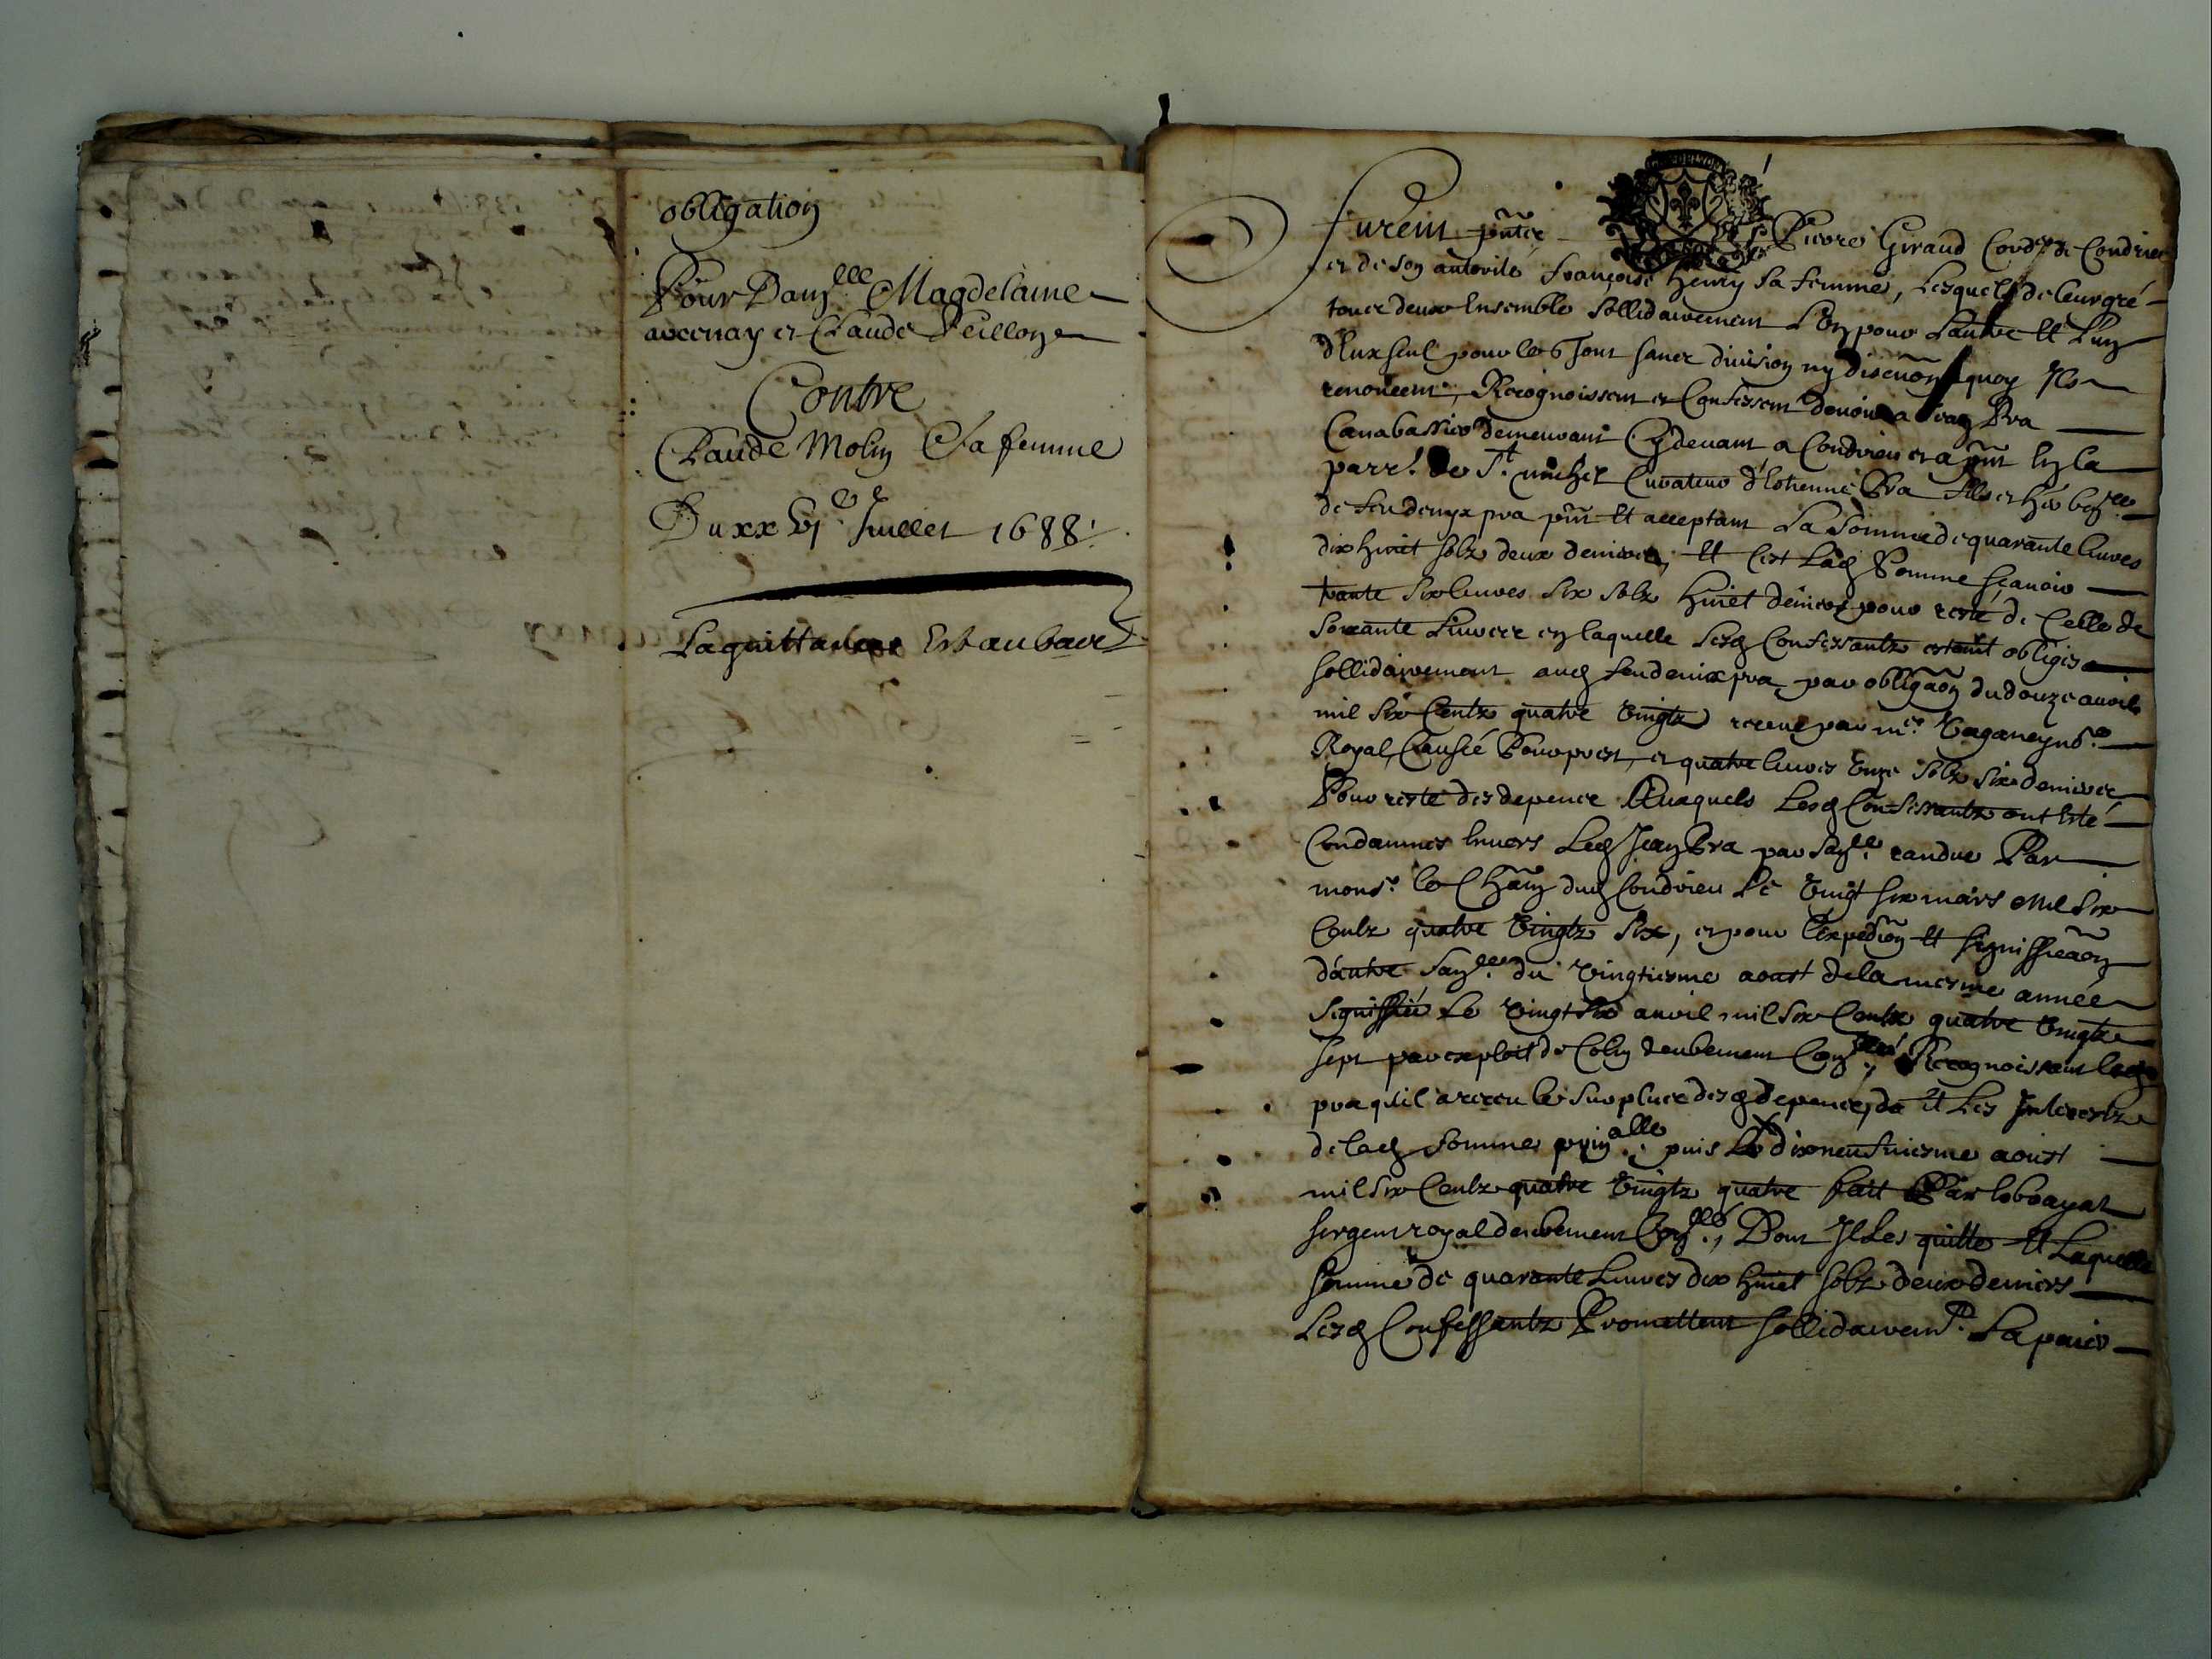 obligation
Pour Dam^lle Magdelaine
avernay et Claude Peillon
Contre
Claude Molin & sa femme
Du xxvj^e Juillet 1688
La quittance est au bas
furent pntz Pierre Giraud Cord^r de Condrieu
et de son autorité françoise henry sa femme, Lesquels de leur gré
tous deux Ensemble sollidairement L'un pour L'autre Et L'un
d'Eux seul pour le tout sans division ny discuõn a quoy Ils
renoncent, Recognoissent et Confessent devoir a Jean Pra
Canabassier demeurant Cy devant a Condrieu et a pñt En la
parr. de S^t. michel Curateur d'Estienne Pra fils et her
de feu denyx pra pñt Et acceptant La Somme de quarante livres
dix huict solz deux deniers, Et C'est Lad Somme sçavoir
trante six livres six solz huict deniers pour reste de Celle de
soixante Livres en laquelle Lesd Confessantz estoint obligés
sollidairement aud feu denix pra par obligãon du douze avril
mil six Centz quatre vingtz receue par m^e. Vaganey no^re
Royal, Causée Pour prest, et quatre livres unze solz six deniers
Pour reste des depence Auxquels Lesd Confessantz ont Esté
Condamnes Envers Led Jean Pra par san^ce. randue Par
mons^r. le Chãin dud Condrieu Le vingt six mars mil six
Centz quatre vingtz six, et pour L'expediõn Et signifficaõn
d'autre san^ce. du vingtiesme aoust de la mesme année
signiffiée Le vingt six avril mil six Centz quatre vingtz
sept par exploit de Colin deubement Con^llé, Recognoissant led
pra qu'il a receu le surplus desd depences, Et Les Interestz
de lad somme prin^alle. puis Le dixneufviesme aoust
mil six Centz quatre vingtz quatre fait Par
sergent royal deubement Con^llé., Dont Il Les quitte Et Laquelle
somme de quarante Livres dix huict solz deux deniers
Lesd Confessantz Promettent sollidairem^t. La paier